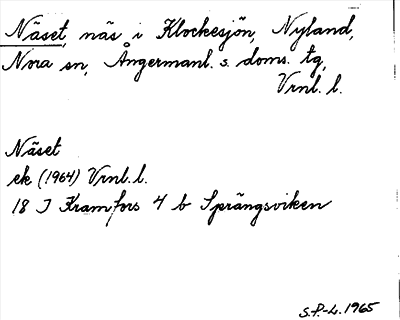 Näset, näs i Klockesjön, Nyland,
Nora sn, Ångermanl. s. doms. tg,
Vrnl. l.
Näset
ek (1964) Vrnl. l.
18 J Kramfors 4 b Sprängsviken
S.P.-L. 1965